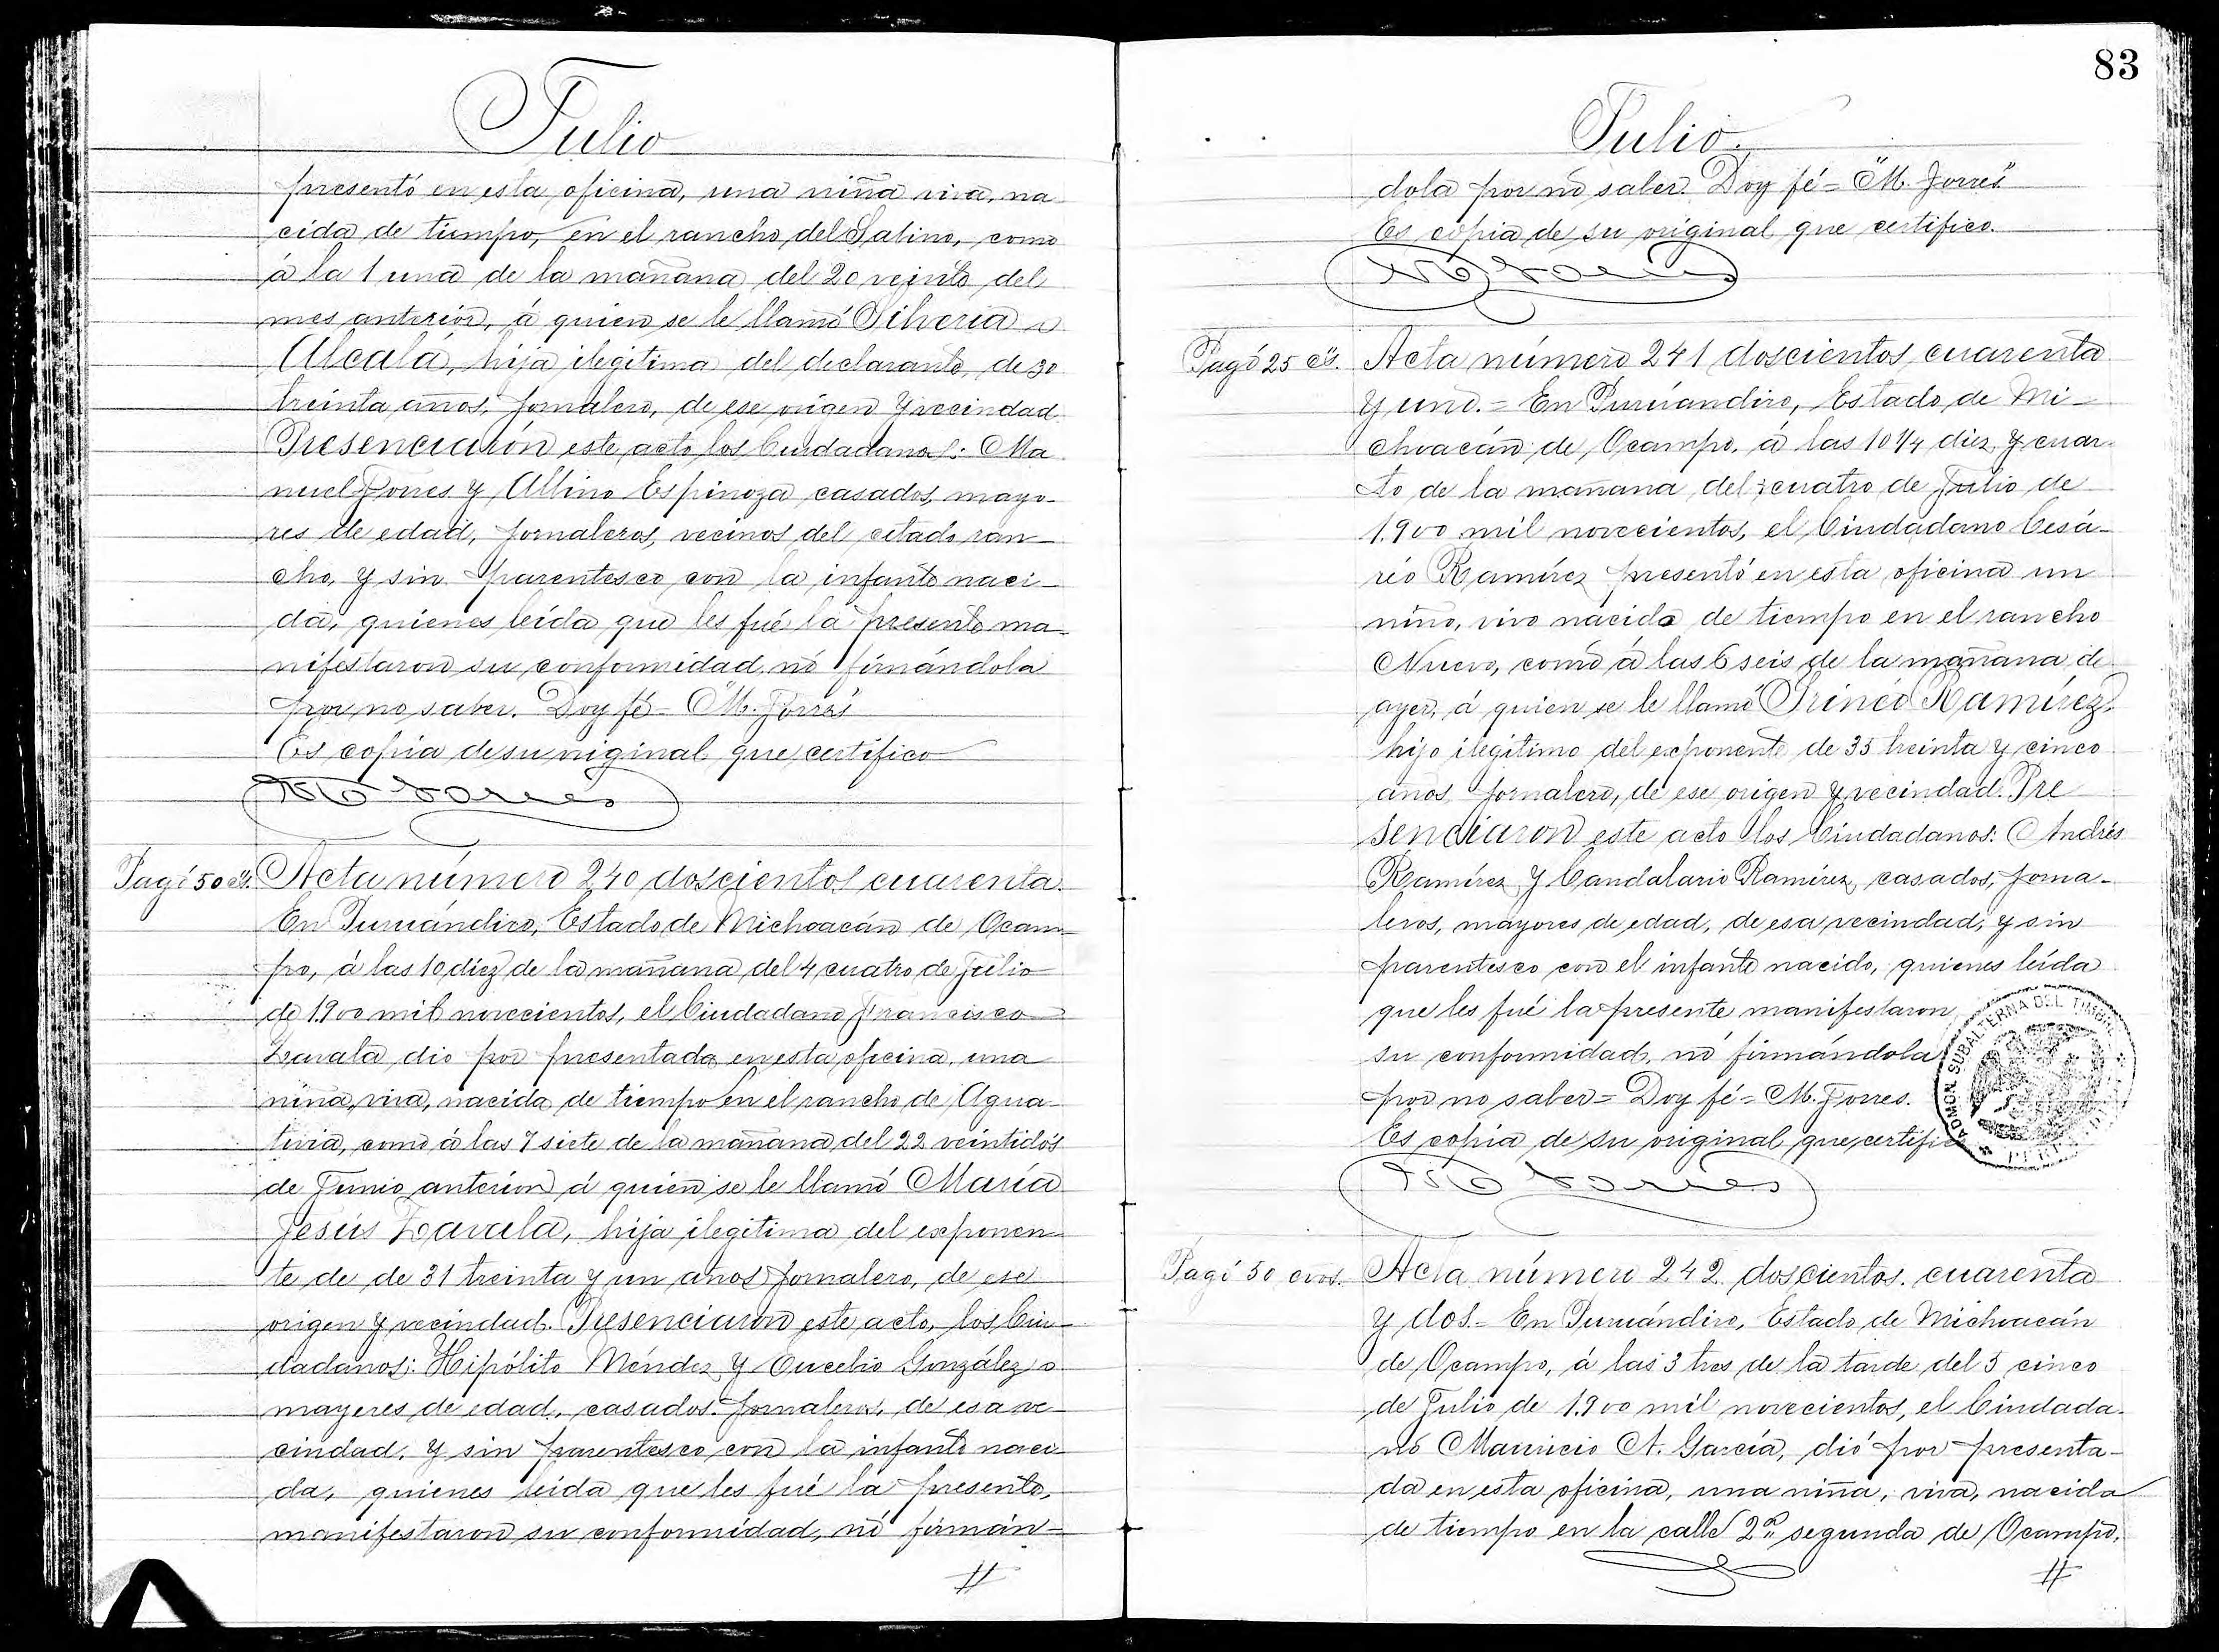 Julio
presentó en esta oficina, una niña viva, na
cida de tiempo, en el rancho del Sabino, como
á la 1 una de la mañana del 20 veinte del
mes anterior, á quien se le llamó Silveria
Alcalá, hija ilegitima del declarante, de 30
treinta años, jornalero, de ese origen y vecindad.
Presenciaron este acto los Ciudadanos: Ma
nuel Torres y Albino Espinoza casados, mayo-
res de edad, jornaleros, vecinos del citado ran-
cho, y sin parentesco con la infante naci-
da, quienes leída que les fué la presente ma-
nifestaron su conformidad nó firmándola
por no saber. Doy fé- "M. Torres"
Es copia de su original que certifico
M Torres
Pagó 50 cs. Acta número 240 doscientos cuarenta.
En Puruándiro, Estado de Michoacán de Ocam-
po, á las 10 diez de la mañana del 4 cuatro de Julio
de 1.900 mil novecientos, el Ciudadano Francisco
Zavala dio por presentada en esta oficina, una
niña, viva, nacida de tiempo en el rancho de Agua
tivia, como á las 7 siete de la mañana del 22 veintidós
de Junio anterior á quien se le llamó María
Jesús Zavala, hija ilegitima del exponen-
te de de 31 treinta y un años, jornalero, de ese
origen y vecindad. Presenciaron este acto, los Ciu-
dadanos: Hipólito Méndez y Eucebio González
mayeres de edad, casados, jornaleros, de esa ve-
cindad, y sin parentesco con la infante naci-
da, quienes leida que les fué la presente,
manifestaron su conformidad, nó firmán-
#
83
Julio.
dola por nó saber. Doy fé- "M. Torres."
Es copia de su original que certifico.
M Torres
Pagó 25 cs. Acta número 241 doscientos cuarenta
y uno.= En Puruándiro, Estado de Mi-
choacán de Ocampo, á las 10 1/4 diez y cuar-
to de la mañana del cuatro de Julio de
1.900 mil novecientos, el Ciudadano Cesá-
reo Ramírez presentó en esta oficina un
niño, vivo nacido de tiempo en el rancho
Nuevo, como á las 6 seis de la mañana de
ayer, á quien se le llamó Irineo Ramírez,
hijo ilegítimo del exponente de 35 treinta y cinco
años, jornalero, de ese origen y vecindad. Pre
senciaron este acto los Ciudadanos: Andrés
Ramírez y Candalario Ramírez, casados, jorna-
leros, mayores de edad, de esa vecindad, y sin
parentesco con el infante nacido, quienes leída
que les fué la presente manifestaron
su conformidad, nó firmándola
por no saber= Doy fé= M. Torres.
Es copia de su original que certific
ADMON SUBALTERNA DEL TIMBRE
M Torres
Pagó 50 cvos. Acta número 242 doscientos cuarenta
y dos.- En Puruándiro, Estado de Michoacán
de Ocampo, á las 3 tres de la tarde del 5 cinco
de Julio de 1.900 mil novecientos, el Ciudada-
no Mauricio A. García, dió por presenta-
da en esta oficina, una niña, viva, nacida
de tiempo en la calle 2ª segunda de Ocampo,
#